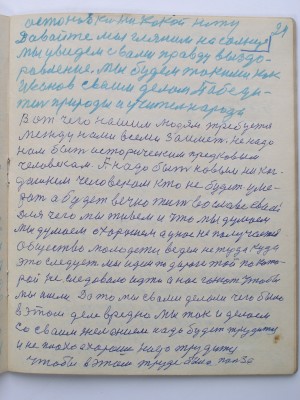 остановки никакой нету 39
Давайте мы глянем на солнце
мы увидем с вами правду выздо-
равление. Мы будем такими как
Иванов своим делом Победи-
тел природы и учител народа
Вот чего нашим людям требуется
между нами всеми Заимет. не надо
нам быт историческим предковым
человекам. А надо быт новым ни ког-
дашнем человеком кто не будет уми-
рат а будет вечно жит во славе своей
Для чего мы живем и что мы думаем
мы думаем о хорошем а у нас не получается
общество молодости ведем не туда куда
это следует мы идем по дороге той по кото-
рой не следовало идти а нас гонют чтобы
мы шли. Да то мы с вами делали чего было
в этом деле вредно мы так и делаем
со своим желанием надо будет трудится
и не плохо а хорошо надо трудится
чтобы в этом труде была польза